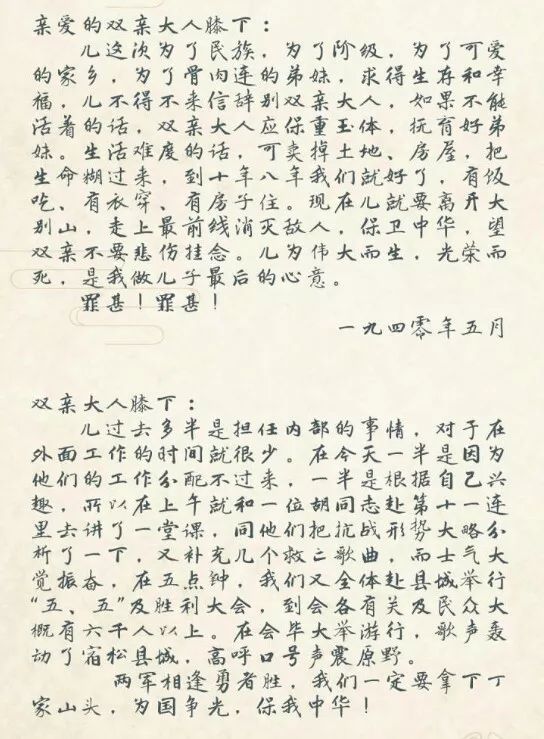 亲爱的双亲大人膝下：
儿这次为了民族，为了阶级，为了可爱
的家乡，为了骨肉连的弟妹，求得生存和幸
福，儿不得不来信辞别双亲大人，如果不能
活着的话，双亲大人应保重玉体，抚育好弟
妹。生活难度的话，可卖掉土地、房屋，把
生命糊过来，到十年八年我们就好了，有饭
吃、有衣穿、有房子住。现在儿就要离开大
别山，走上最前线消灭敌人，保卫中华，望
双亲不要悲伤挂念。儿为伟大而生，光荣而
死，是我做儿子最后的心意。
罪甚！罪甚！
一九四零年五月
双亲大人膝下：
儿过去多半是担任内部的事情，对于在
外面工作的时间就很少。在今天一半是因为
他们的工作分配不过来，一半是根据自己兴
趣，所以在上午就和一位胡同志赴第十一连
里去讲了一堂课，同他们把抗战形势大略分
析了一下，又补充几个救亡歌曲，而士气大
觉振奋，在五点钟，我们又全体赴县城举行
“五、五”及胜利大会，到会各有关及民众大
概有六千人以上。在会毕大举游行，歌声轰
动了宿松县城，高呼口号声震原野。
两军相逢勇者胜，我们一定要拿下丁
家山头，为国争光，保我中华！